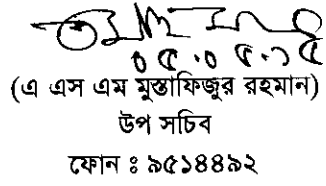 ০৫.০৫.১৫
(এ এস এম মুস্তাফিজুর রহমান)
উপ সচিব
ফোন ঃ ৯৫১৪৪৯২